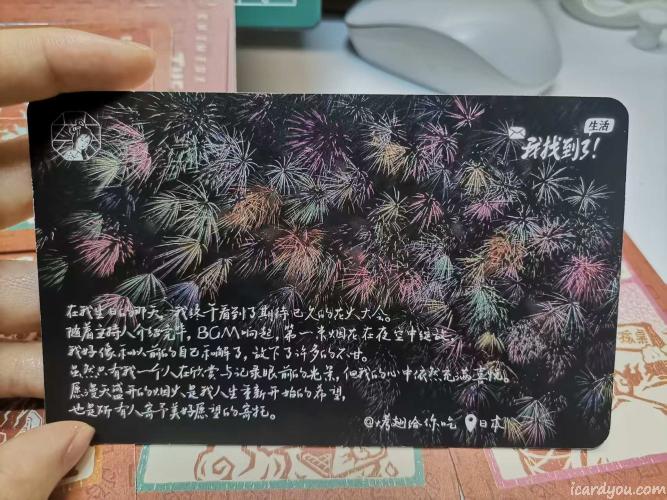 生活
我找到了!
在我生日的那天,我终于看到了期待已久的花火大会。
随着主持人介绍完毕,BGM响起,第一束烟花在夜空中绽放。
我好像和以前的自己和解了,放下了许多的不甘。
虽然只有我一个人在欣赏与记录眼前的光景,但我的心中依然充满喜悦。
愿漫天盛开的烟火是我人生重新开始的希望,
也是所有人寄予美好愿望的寄托。
@烤翅给你吃 日本
icardyou.com